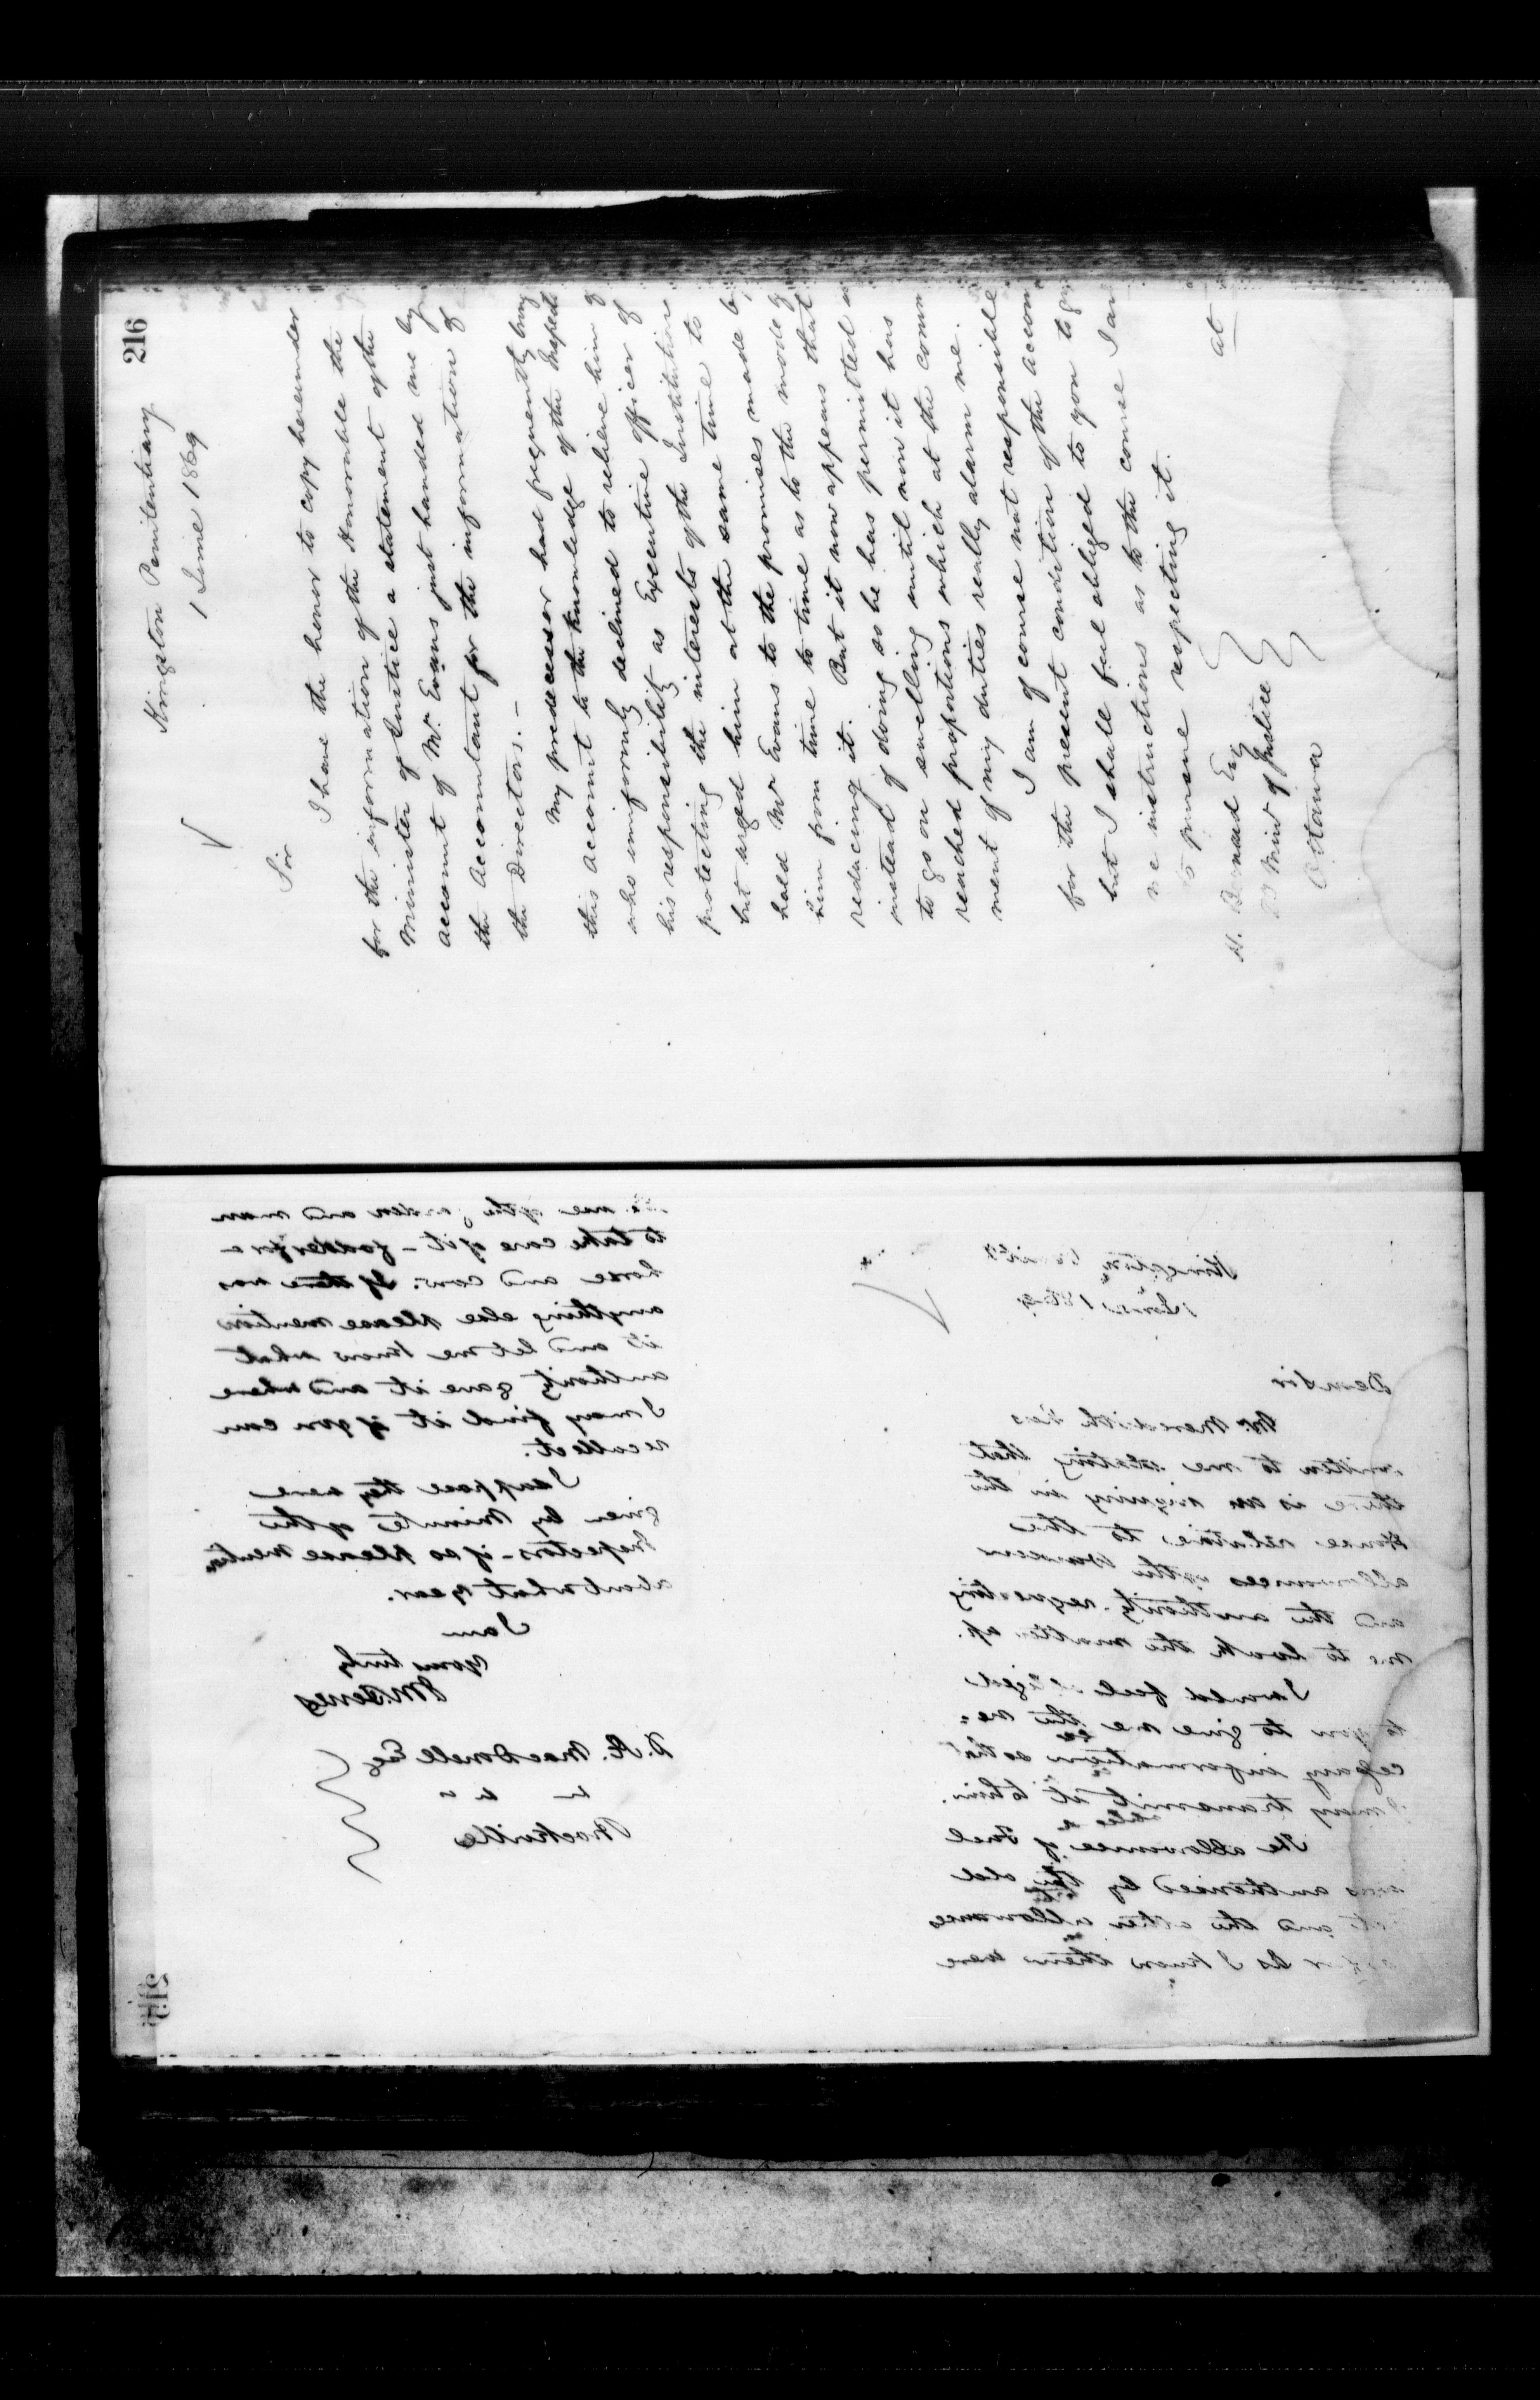 216
Kingston Penitentiary
1 June 1869
Sir
I have the honor to copy hereunder
for the information of the Honorable the
Minister of Justice a statement of the
account of Mr Evans just handed me by
the Accountant for the information of
the Directors. -
My predecessor had frequently brought
this account to the knowledge of the Inspectors
who uniformly declined to relieve him of
his responsibility as Executive officer of
protecting the interests of the Institution
but urged him at the same time to
hold Mr Evans to the promises made by
him from time to time as to the mode of
reducing it. But it now appears that
instead of doing so he has permitted it
to go on swelling until now it has
reached proportions which at the commence
ment of my duties really alarm me.
I am of course not responsible
for the present condition of the account
but I shall feel obliged to you to give
me instructions as to the course I am
to pursue respecting it.
H. Bernard Esq
Min of Justice
Ottawa
at
215
Kingston
June 1869
Dear Sir
Mr. Meredith has
written to me stating that
there is an inquiry in the
House relative to the
allowances of the Warden
and the authority requesting
me to look the matter up.
I would feel obliged
to you to give me the ne-
cessary information so that
I may transmit it to him.
The allowance of Fuel
was authorised by the old
and the other allowances
as far as I know them were
the use of the garden and man
to take care of it - fodder for a
horse and cow. If there was
anything else please mention
it and let me know what
authority gave it and where
I may find it if you can
recollect.
I suppose they were
given by Minute of the
Inspectors - if so please mention
about what year.
I am
Yours truly
J M Ferres
D. Æ. MacDonell Esq
Brockville